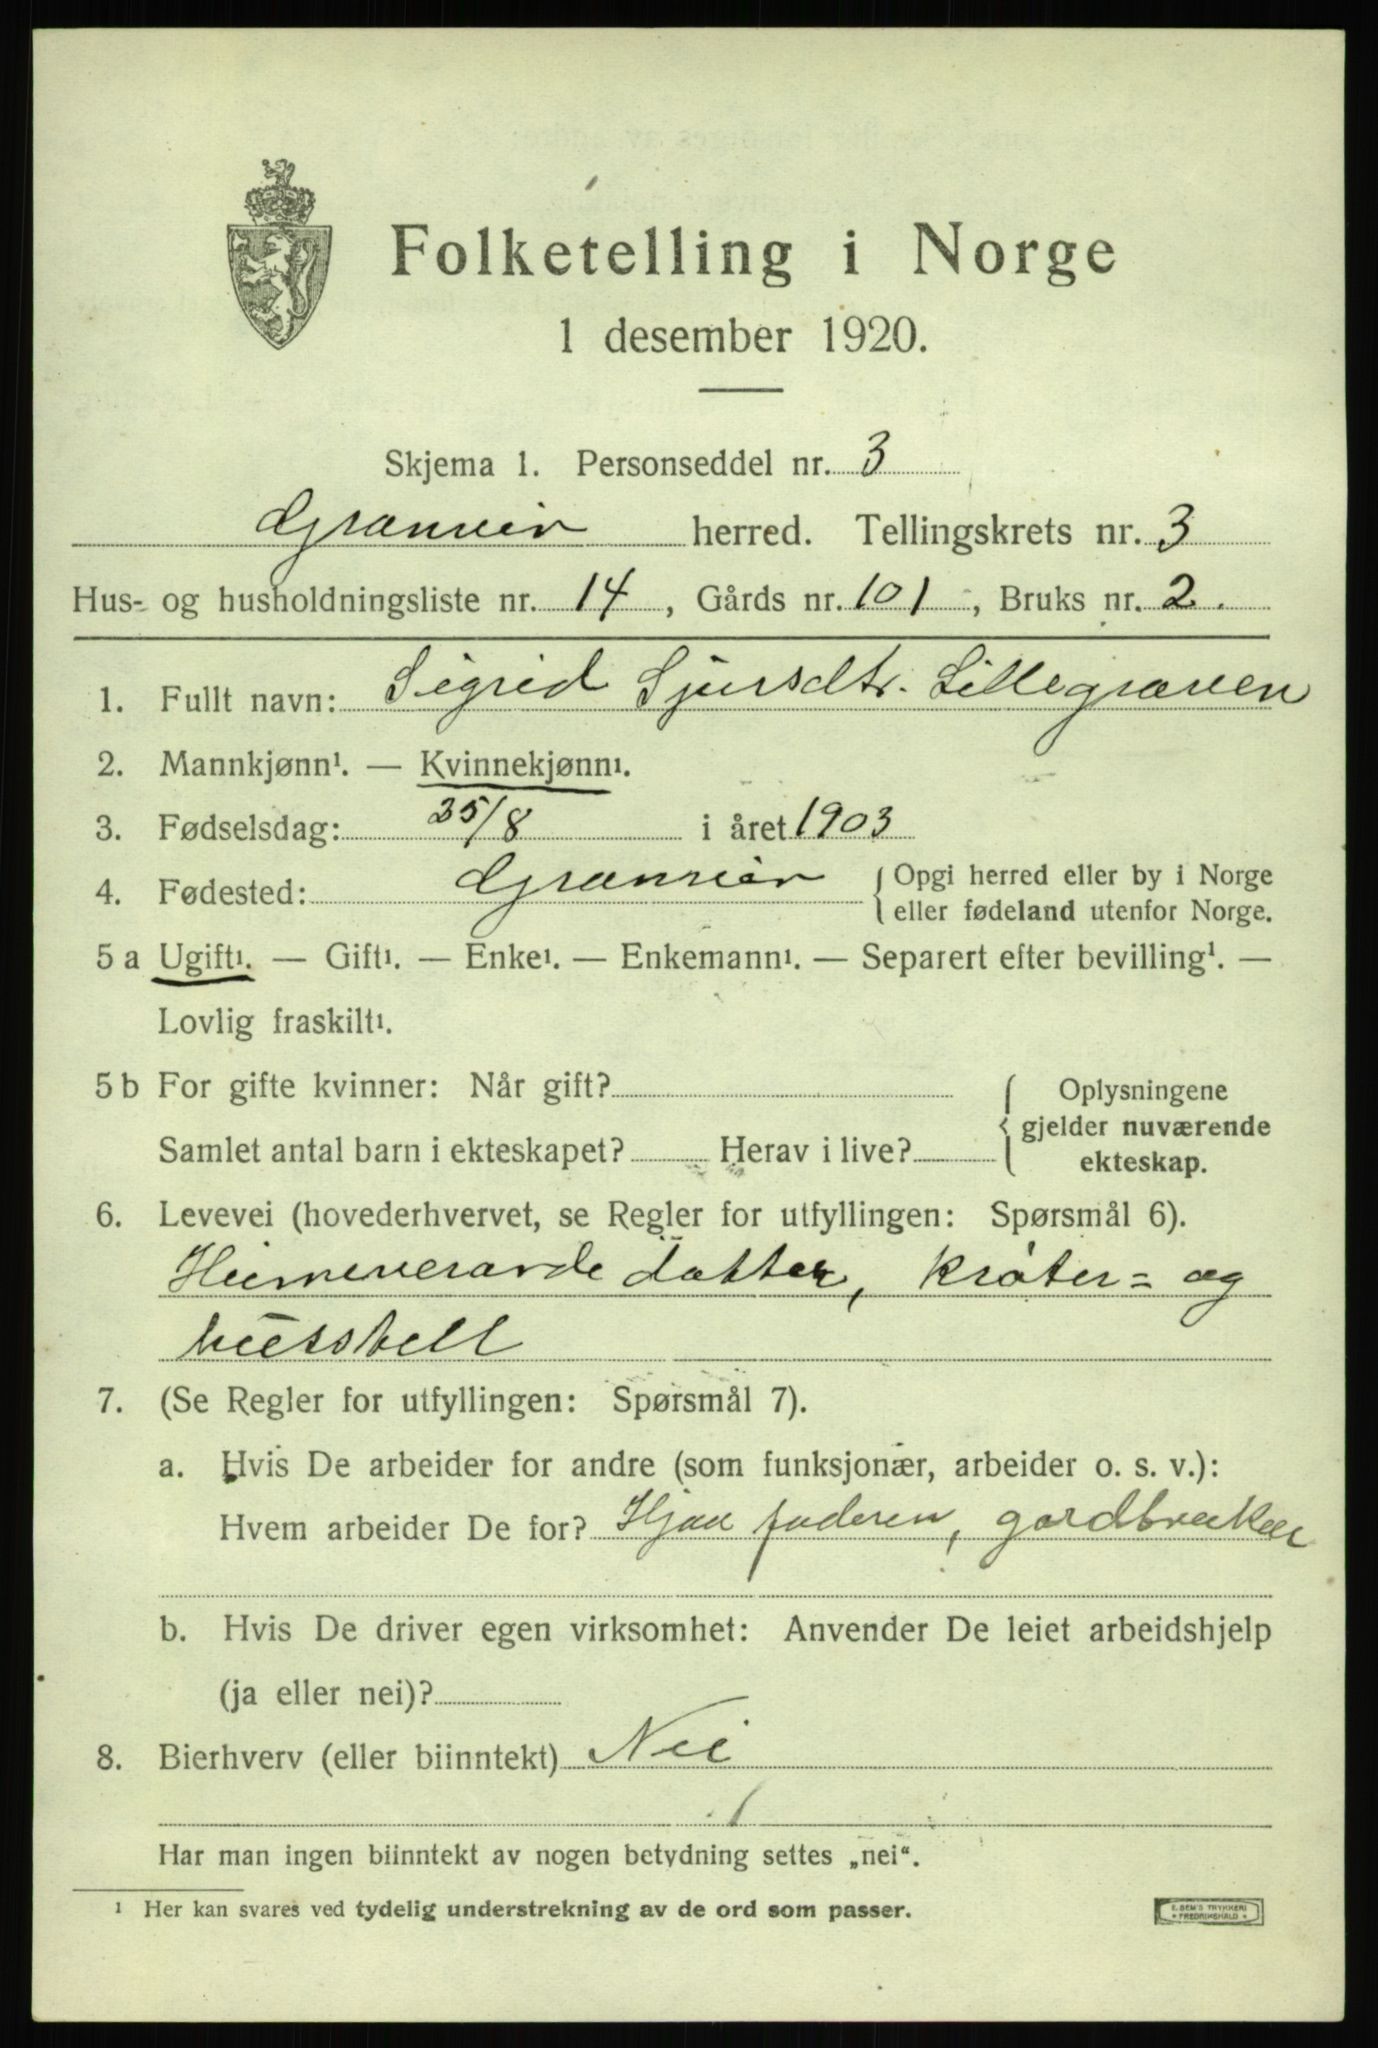 Folketelling i Norge
1 desember 1920.
Skjema 1. Personseddel nr. 3
Granvin herred. Tellingskrets nr. 3
Hus- og husholdningsliste nr. 14, Gårds nr. 101, Bruks nr. 2.
1. Fullt navn: Sigrid Sjursdtr. Lillegraven
2. Mannkjønn¹. — Kvinnekjønn¹.
3. Fødselsdag: 25/8 i året 1903
4. Fødested: Granvin { Opgi herred eller by i Norge
eller fødeland utenfor Norge.
5 a Ugift¹. — Gift¹. — Enke¹. — Enkemann¹. — Separert efter bevilling¹. —
Lovlig fraskilt¹.
5 b For gifte kvinner: Når gift?
Samlet antal barn i ekteskapet? Herav i live?
{ Oplysningene
gjelder nuværende
ekteskap.
6. Levevei (hovederhvervet, se Regler for utfyllingen: Spørsmål 6).
Heimeverande dotter, krøter- og
husstell
7. (Se Regler for utfyllingen: Spørsmål 7).
a. Hvis De arbeider for andre (som funksjonær, arbeider o. s. v.):
Hvem arbeider De for? Hjaa faderen, gardbrukar
b. Hvis De driver egen virksomhet: Anvender De leiet arbeidshjelp
(ja eller nei)?
8. Bierhverv (eller biinntekt) Nei
Har man ingen biinntekt av nogen betydning settes „nei“.
¹ Her kan svares ved tydelig understrekning av de ord som passer.
E. SEM'S TRYKKERI
FREDRIKSHALD